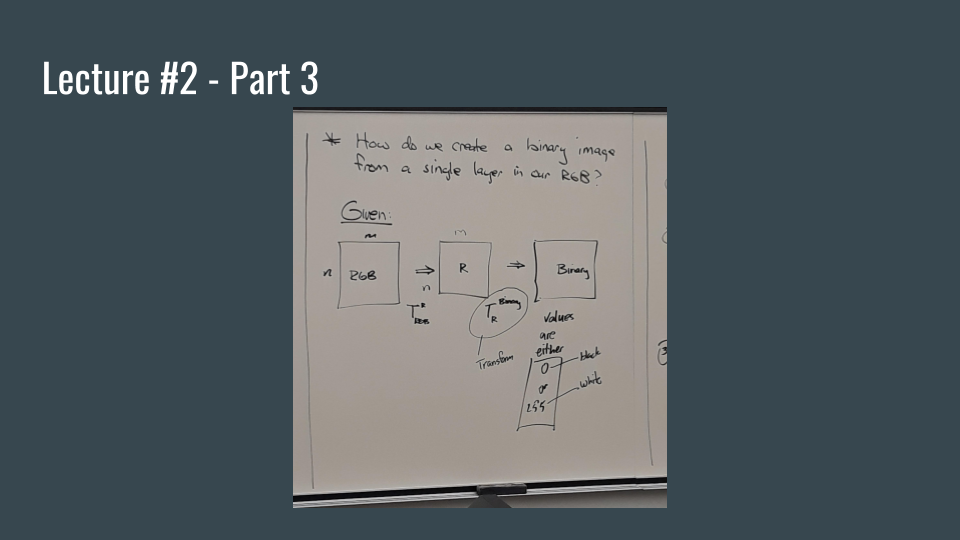 Lecture #2 - Part 3
* How do we create a binary image
from a single layer in our RGB?
Given:
m
m
n RGB ⇒ R ⇒ Binary
n
T RGB R
T R Binary
values
are
either
Transform
0 black
or
255 white